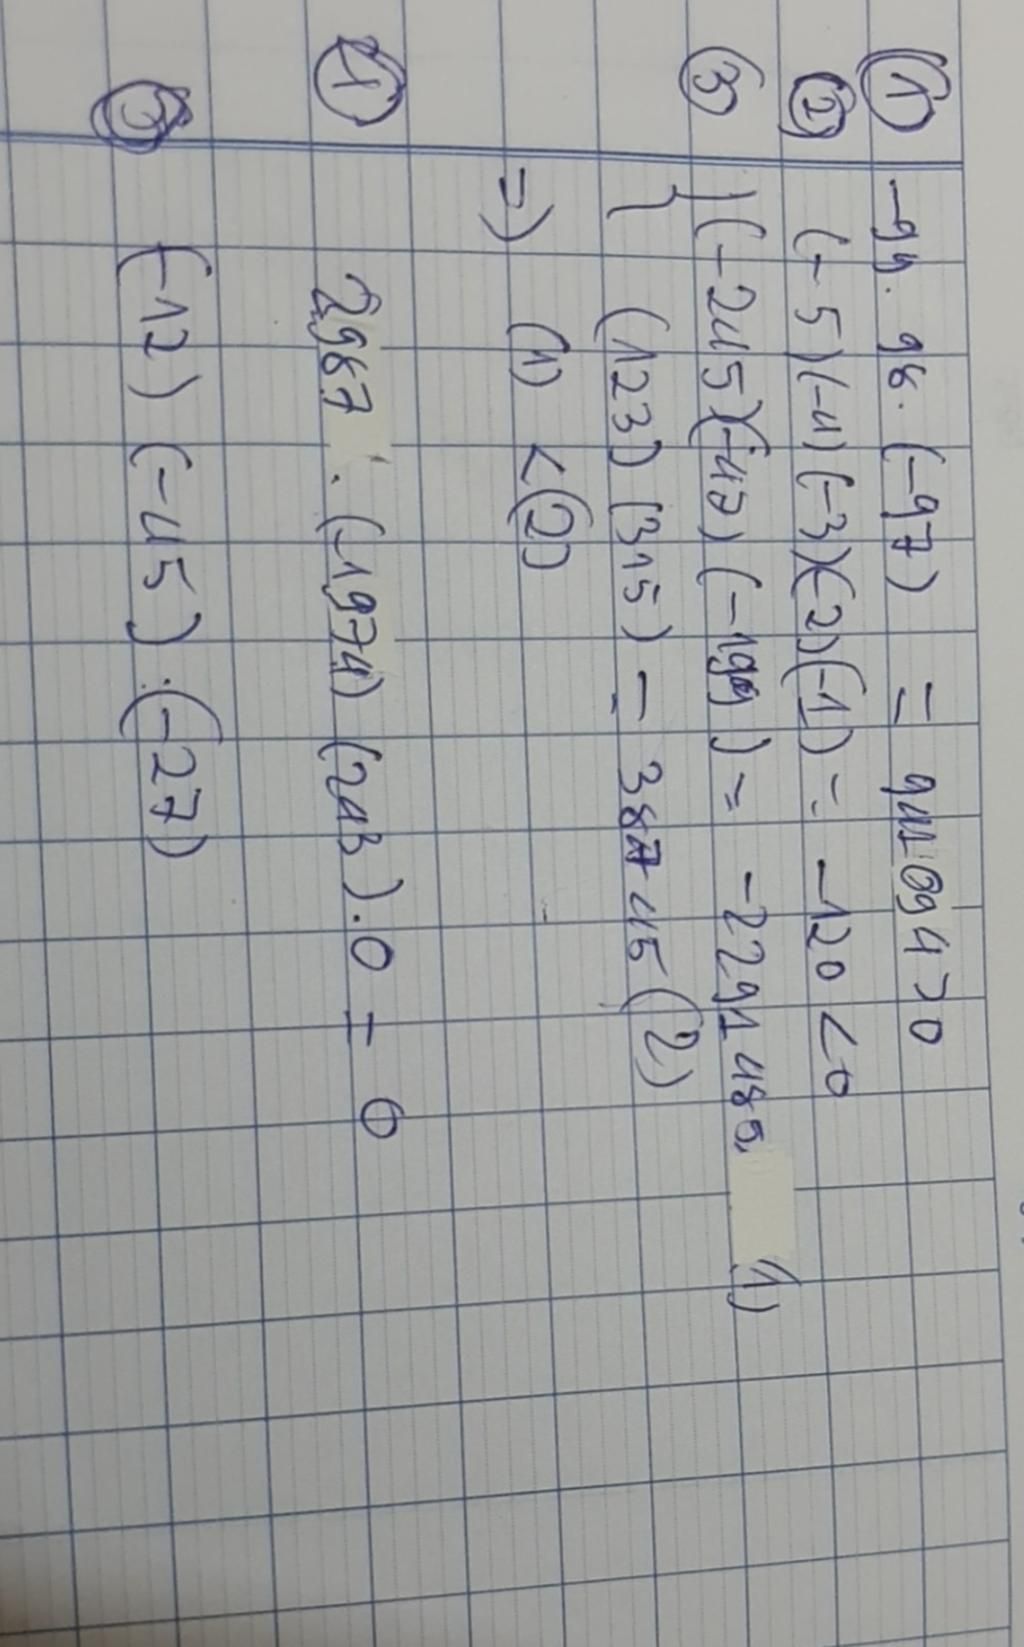 ① -99. 98. (-97) = 941094 > 0
② (-5)(-4)(-3)(-2)(-1) = -120 < 0
③ } (-245)(-47)(-199) = -2291485 (1)
} (123)(315) = 38745 (2)
=) (1) < (2)
④ 2987 . (-1974) (243).0 = 0
⑤ (-12) (-45) . (-27)